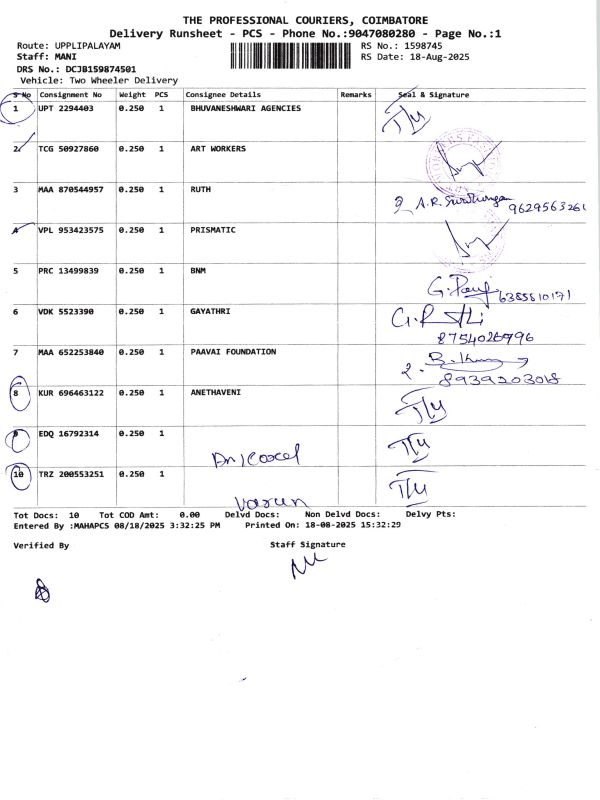 THE PROFESSIONAL COURIERS, COIMBATORE
Delivery Runsheet - PCS - Phone No.:9047080280 - Page No.:1
Route: UPPLIPALAYAM RS No.: 1598745
Staff: MANI RS Date: 18-Aug-2025
DRS No.: DCJB159874501
Vehicle: Two Wheeler Delivery
S No Consignment No Weight PCS Consignee Details Remarks Seal & Signature
1 UPT 2294403 0.250 1 BHUVANESHWARI AGENCIES
2 TCG 50927860 0.250 1 ART WORKERS
3 MAA 870544957 0.250 1 RUTH
9629563261
4 VPL 953423575 0.250 1 PRISMATIC
5 PRC 13499839 0.250 1 BNM
6385810171
6 VDK 5523390 0.250 1 GAYATHRI
8754026996
7 MAA 652253840 0.250 1 PAAVAI FOUNDATION
8939203018
8 KUR 696463122 0.250 1 ANETHAVENI
9 EDQ 16792314 0.250 1
10 TRZ 200553251 0.250 1
Varun
Tot Docs: 10 Tot COD Amt: 0.00 Delvd Docs: Non Delvd Docs: Delvy Pts:
Entered By :MAHAPCS 08/18/2025 3:32:25 PM Printed On: 18-08-2025 15:32:29
Verified By Staff Signature